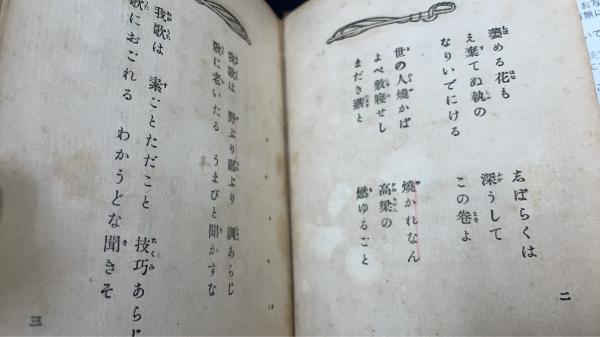 萎める花も しばらくは
え棄てぬ執の 深うして
なりいでにける この卷よ
世の人燒かば 燒かれなん
よべ敷寢せし 高粱の
まだき薪と 燃ゆるごと
二
我歌は 野ぶり鄙ぶり 調あらじ
歌に老いたる うまびと聞かすな
我歌は 素ごとただこと 技巧あらじ
歌におごれる わかうどな聞きそ
三